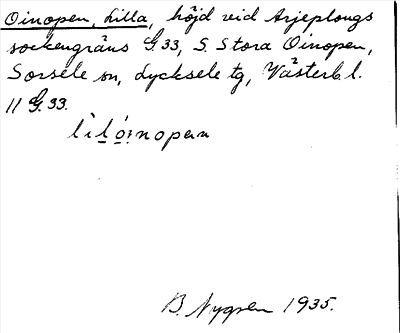 Oinopen, Lilla, höjd vid Arjeplougs
sockengräns G 33, S. Stora Oinopen,
Sorsele sn, Lycksele tg, Västerb. l.
11 G. 33.
B. Nygren 1935.